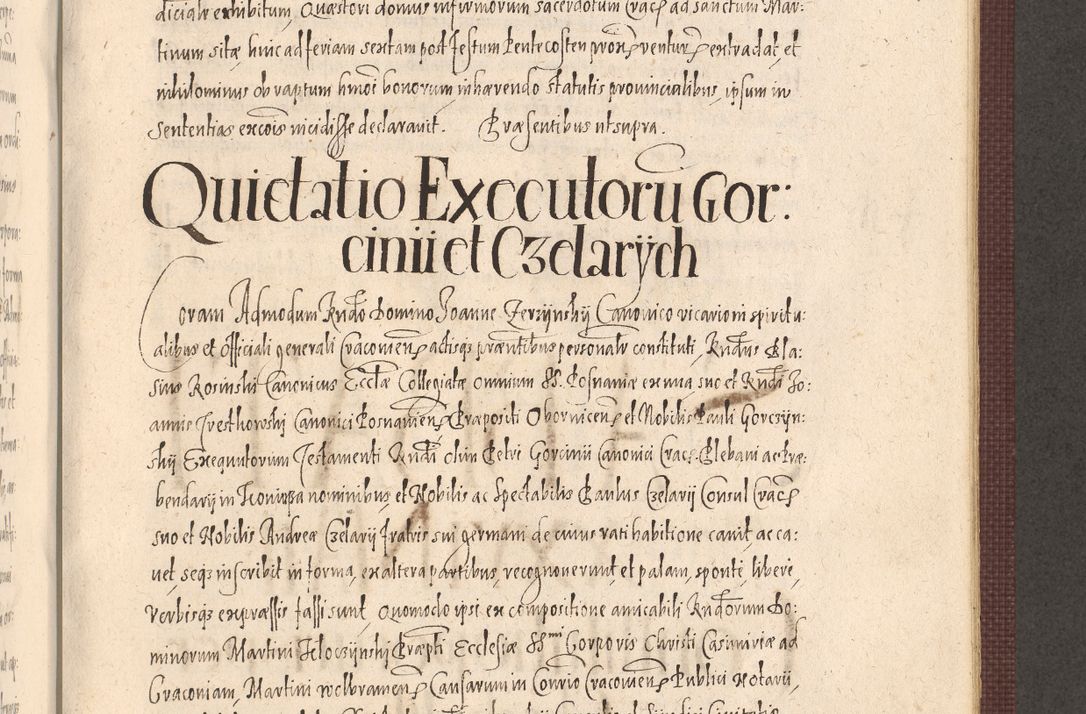 diciale exhibitum, Quæstori domus infirmorum sacerdotum Crac: ad sanctum Mar:
tinum sitæ, huic ad feriam sextam post festum Pentecosten prox: ventur: extradat, et
nihilominus ob raptum hmoi bonorum, inhærendo statutis provincialibus, ipsum in
sententias excois incidisse declaravit. Præsentibus ut supra.
Quietatio Executorū Gor:
cinii et Czelarÿch
Coram Admodum Rndo Domino Joanne Zerzijnskij Canonico vicario in spiritu:
alibus et Officiali generali Cracovien: actisqs præntibus personalr constituti, Rndus Bla:
sius Rosinski Canonicus Ecclæ Collegiatæ omnium SS. Posnaniæ ex una suo et Rndi Jo:
annis Canonici Posnanien: Præpositi Obornicen: et Nobilis Pauli Gorczijn:
skij Exequutorum Testamenti Rndi olim Petri Gorcinii Canonici Crac: Plebani ac Præ:
bendarij in nominibus, et Nobilis ac Spectabilis Paulus Czelarij Consul Crac:
suo et Nobilis Andreæ Czelarij fratris sui germani de cuius rati habitione cavit, ac ca:
vet, seqs inscribit in forma, ex altera partibus, recognoverunt, et palam, sponte, libere,
verbisqs expræssis fassi sunt, Quomodo ipsi ex compositione amicabili Rndorum Do:
minorum Martini Kloczijnskij Præpti Ecclesiæ SSmi Corporis Christi Casimiriæ ad
Cracoviam, Martini Wolbramen: Causarum in Conrio Cracovien: Publici Notarii,